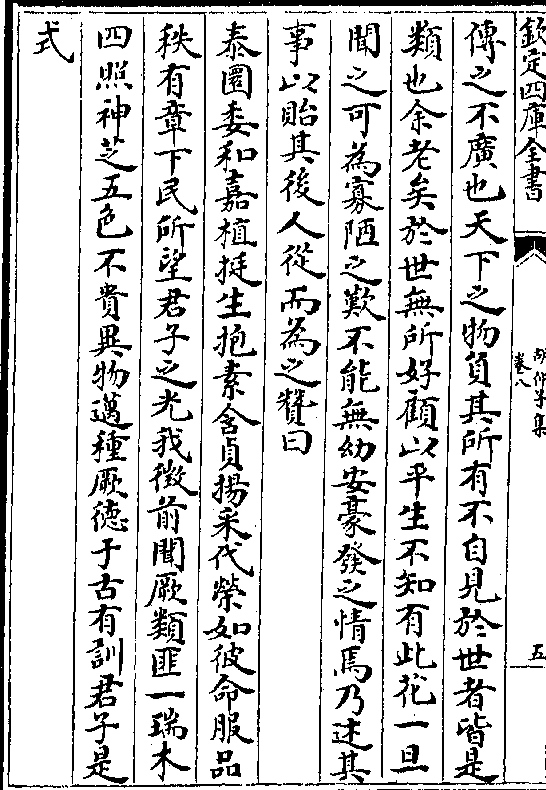 欽定四庫全書
胡仲子集
卷八
五
傳之不廣也天下之物負其所有不自見於世者皆是
類也余老矣於世無所好顧以平生不知有此花一旦
聞之可為寡陋之歎不能無幼安豪發之情焉乃述其
事以貽其後人從而為之贊曰
泰園委和嘉植挺生抱素含貞揚采代榮如彼命服品
秩有章下民所望君子之光我徵前聞厥類匪一瑞木
四照神芝五色不貴異物邁種厥德于古有訓君子是
式